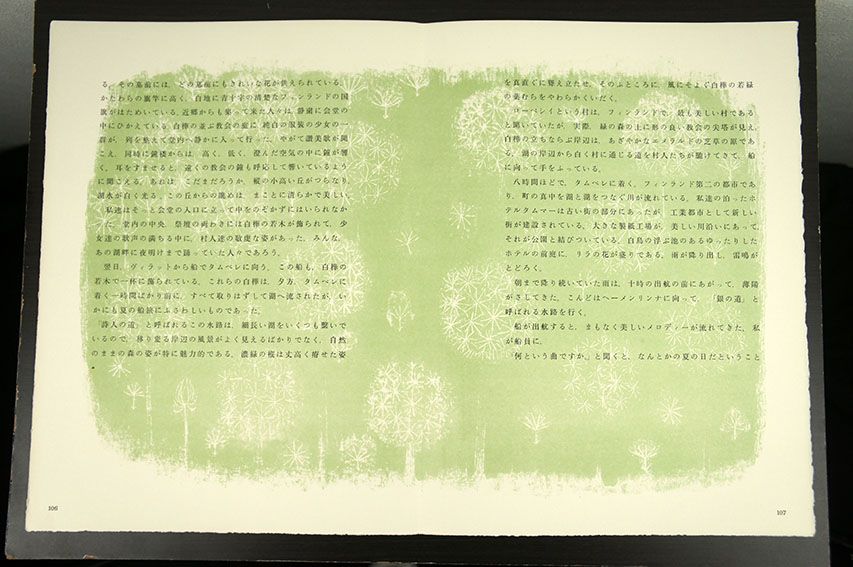 る。その墓前には、どの墓前にもきれいな花が供えられている。
かたわらの旗竿に高く、白地に青十字の清楚なフィンランドの国
旗がはためいている。近郷からも集って来た人々は、静粛に会堂の
中にひかえている。白樺の並ぶ教会の庭に、純白の服装の少女の一
群が、列を整えて堂内へ静かに入って行った。やがて讃美歌が聞
こえ、同時に鐘楼からは、高く、低く、澄んだ空気の中に鐘が響
く。耳をすませると、遠くの教会の鐘も呼応して響いているよう
に聞こえる。あれは、こだまだろうか。縦の小高い丘がつらなり、
湖水が白く光る。この丘からの眺めは、まことに清らかで美しい。
私達はそっと会堂の入口に立って中をのぞかずにはいられなか
った。堂内の中央、祭壇の両わきには白樺の若木が飾られて、少
女達の歌声の満ちる中に、村人達の敬虔な姿があった。みんな、
あの湖畔に夜明けまで踊っていた人々であろう。
翌日、ヴィラットから船でタムペレに向う。この船も、白樺の
若木で一杯に飾られている。これらの白樺は、夕方、タムペレに
着く一時間ばかり前に、すべて取りはずして湖へ流されたが、い
かにも夏の船旅にふさわしいものであった。
「詩人の道」と呼ばれるこの水路は、細長い湖をいくつも繋いで
いるので、移り変る岸辺の風景がよく見えるばかりでなく、自然
のままの森の姿が特に魅力的である。濃緑の樅は丈高く痩せた姿
106
を真直ぐに聳え立たせ、そのふところに、風にそよぐ白樺の若緑
の葉むらをやわらかくいだく。
ルーベシイという村は、フィンランドで、最も美しい村である
と聞いていたが、実際、緑の森の上に形の良い教会の尖塔が見え、
白樺の立ちならぶ岸辺は、あざやかなエメラルドの芝草の原であ
る。湖の岸辺から白く村に通じる道を村人たちが駈けてきて、船
に向って手をふっている。
八時間ほどで、タムペレに着く。フィンランド第二の都市であ
り、町の真中を湖と湖をつなぐ川が流れている。私達の泊ったホ
テルタムマーは古い街の部分にあったが、工業都市として新しい
街が建設されている。大きな製紙工場が、美しい川沿いにあって、
それが公園と結びついている。白鳥の浮ぶ池のあるゆったりした
ホテルの前庭に、リラの花が盛りである。雨が降り出し、雷鳴が
とどろく。
朝まで降り続いていた雨は、十時の出航の前にあがって、薄陽
がさしてきた。こんどはヘーメンリンナに向って、「銀の道」と
呼ばれる水路を行く。
船が出航すると、まもなく美しいメロディーが流れてきた。私
が船員に、
「何という曲ですか」と聞くと、なんとかの夏の日だということ
107